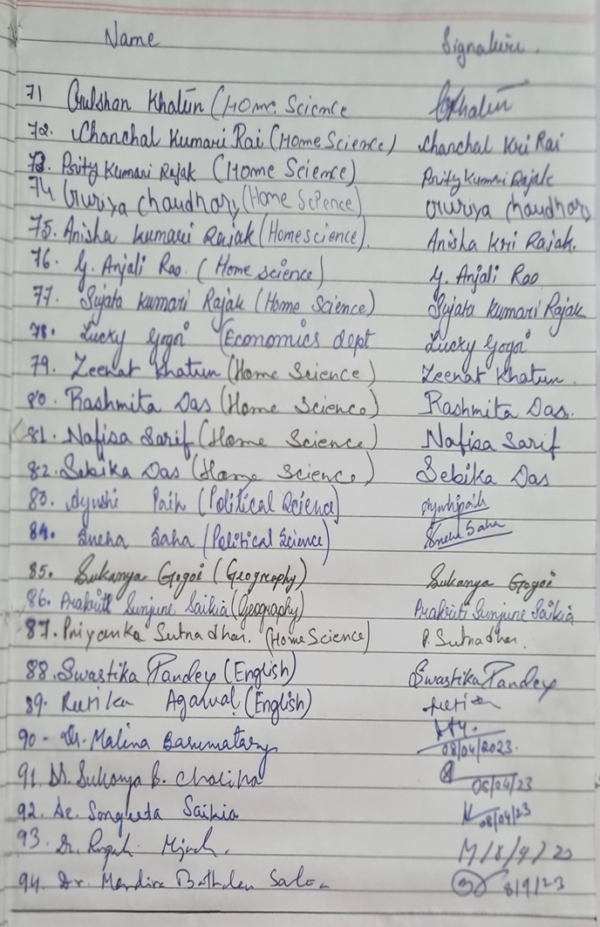 Name Signature.
71 Gulshan Khatun (Home Science Gkhatun
72. Chanchal Kumari Rai (Home Science) Chanchal Kri Rai
73. Parity Kumari Rajak (Home Science) Parity Kumari Rajak
74 Guriya Chaudhary (Home Science) Guriya Chaudhary
75. Anisha Kumari Rajak (Home science). Anisha Kri Rajak.
76. Y. Anjali Rao. (Home science) Y. Anjali Rao
77. Sujata Kumari Rajak (Home Science) Sujata Kumari Rajak
78. Lucky Gogoi (Economics dept Lucky Gogoi
79. Zeenat Khatun (Home Science) Zeenat Khatun.
80. Rashmita Das (Home Science) Rashmita Das.
81. Nafisa Sarif (Home Science) Nafisa Sarif
82. Sebika Das (Home Science) Sebika Das
83. Ayushi (Political Science)
84. Sneha Saha (Political Science) Sneha Saha
85. Sukanya Gogoi (Geography) Sukanya Gogoi
86. Prakriti Sunjune Saikia (Geography) Prakriti Sunjune Saikia
87. Priyanka Sutradhar. (Home Science) P. Sutradhar.
88. Swastika Pandey (English) Swastika Pandey
89. Rutika Agarwal (English)
90 - Dr. Malina Basumatary 08/04/2023.
91 Dr. Sukanya B. Chaliha 08/04/23
92. Dr. Sangeeta Saikia 08/04/23
93. Dr.
94. Dr. Mandira 8/9/23